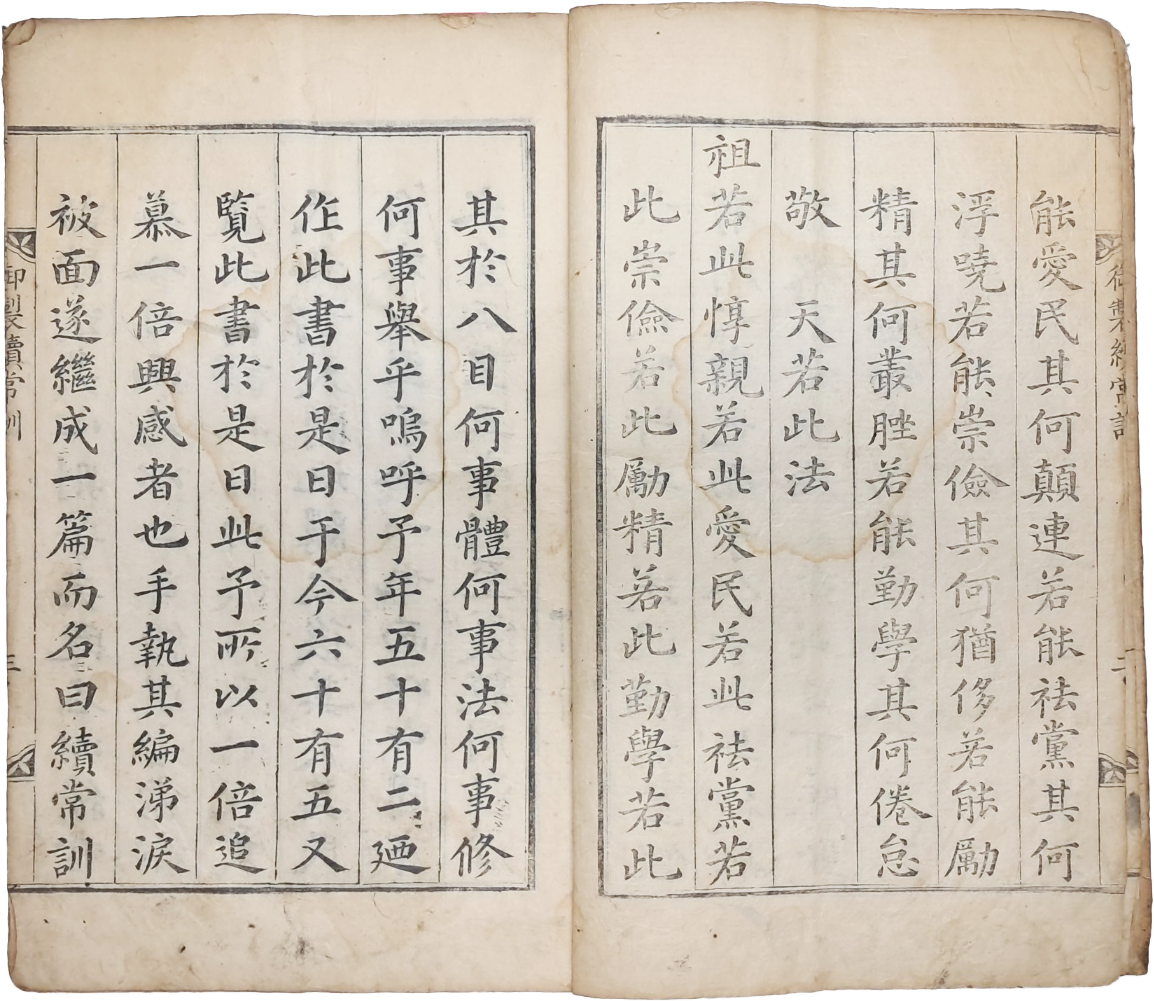 能愛民其何顛連若能祛黨其何
浮曉若能崇儉其何猶侈若能勵
精其何叢脞若能勤學其何倦怠
敬　天若此法
祖若此惇親若此愛民若此祛黨若
此崇儉若此勵精若此勤學若此
其於八目何事體何事法何事修
何事舉乎嗚呼予年五十有二廼
作此書於是日于今六十有五又
覽此書於是日此予所以一倍追
慕一倍興感者也手執其編涕淚
被面遂繼成一篇而名曰續常訓
御製續常訓
二
御製續常訓
三